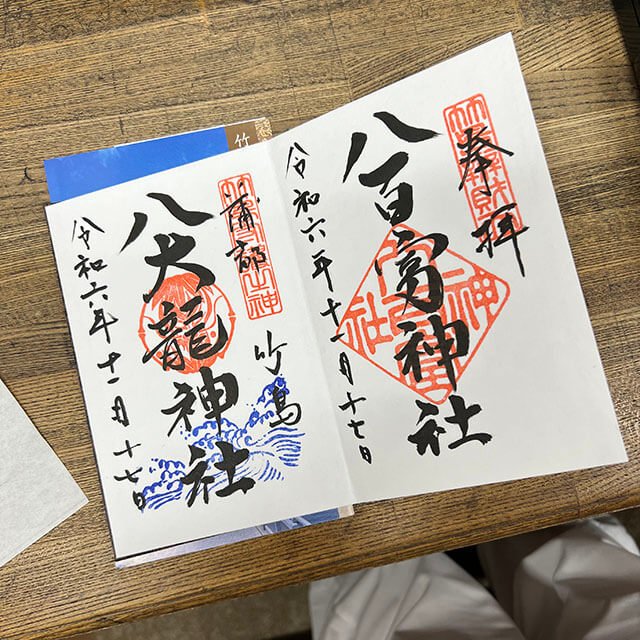 奉拝
八百富神社
令和六年十一月十七日
蒲郡
竹島
八大龍神社
令和六年十一月十七日
竹